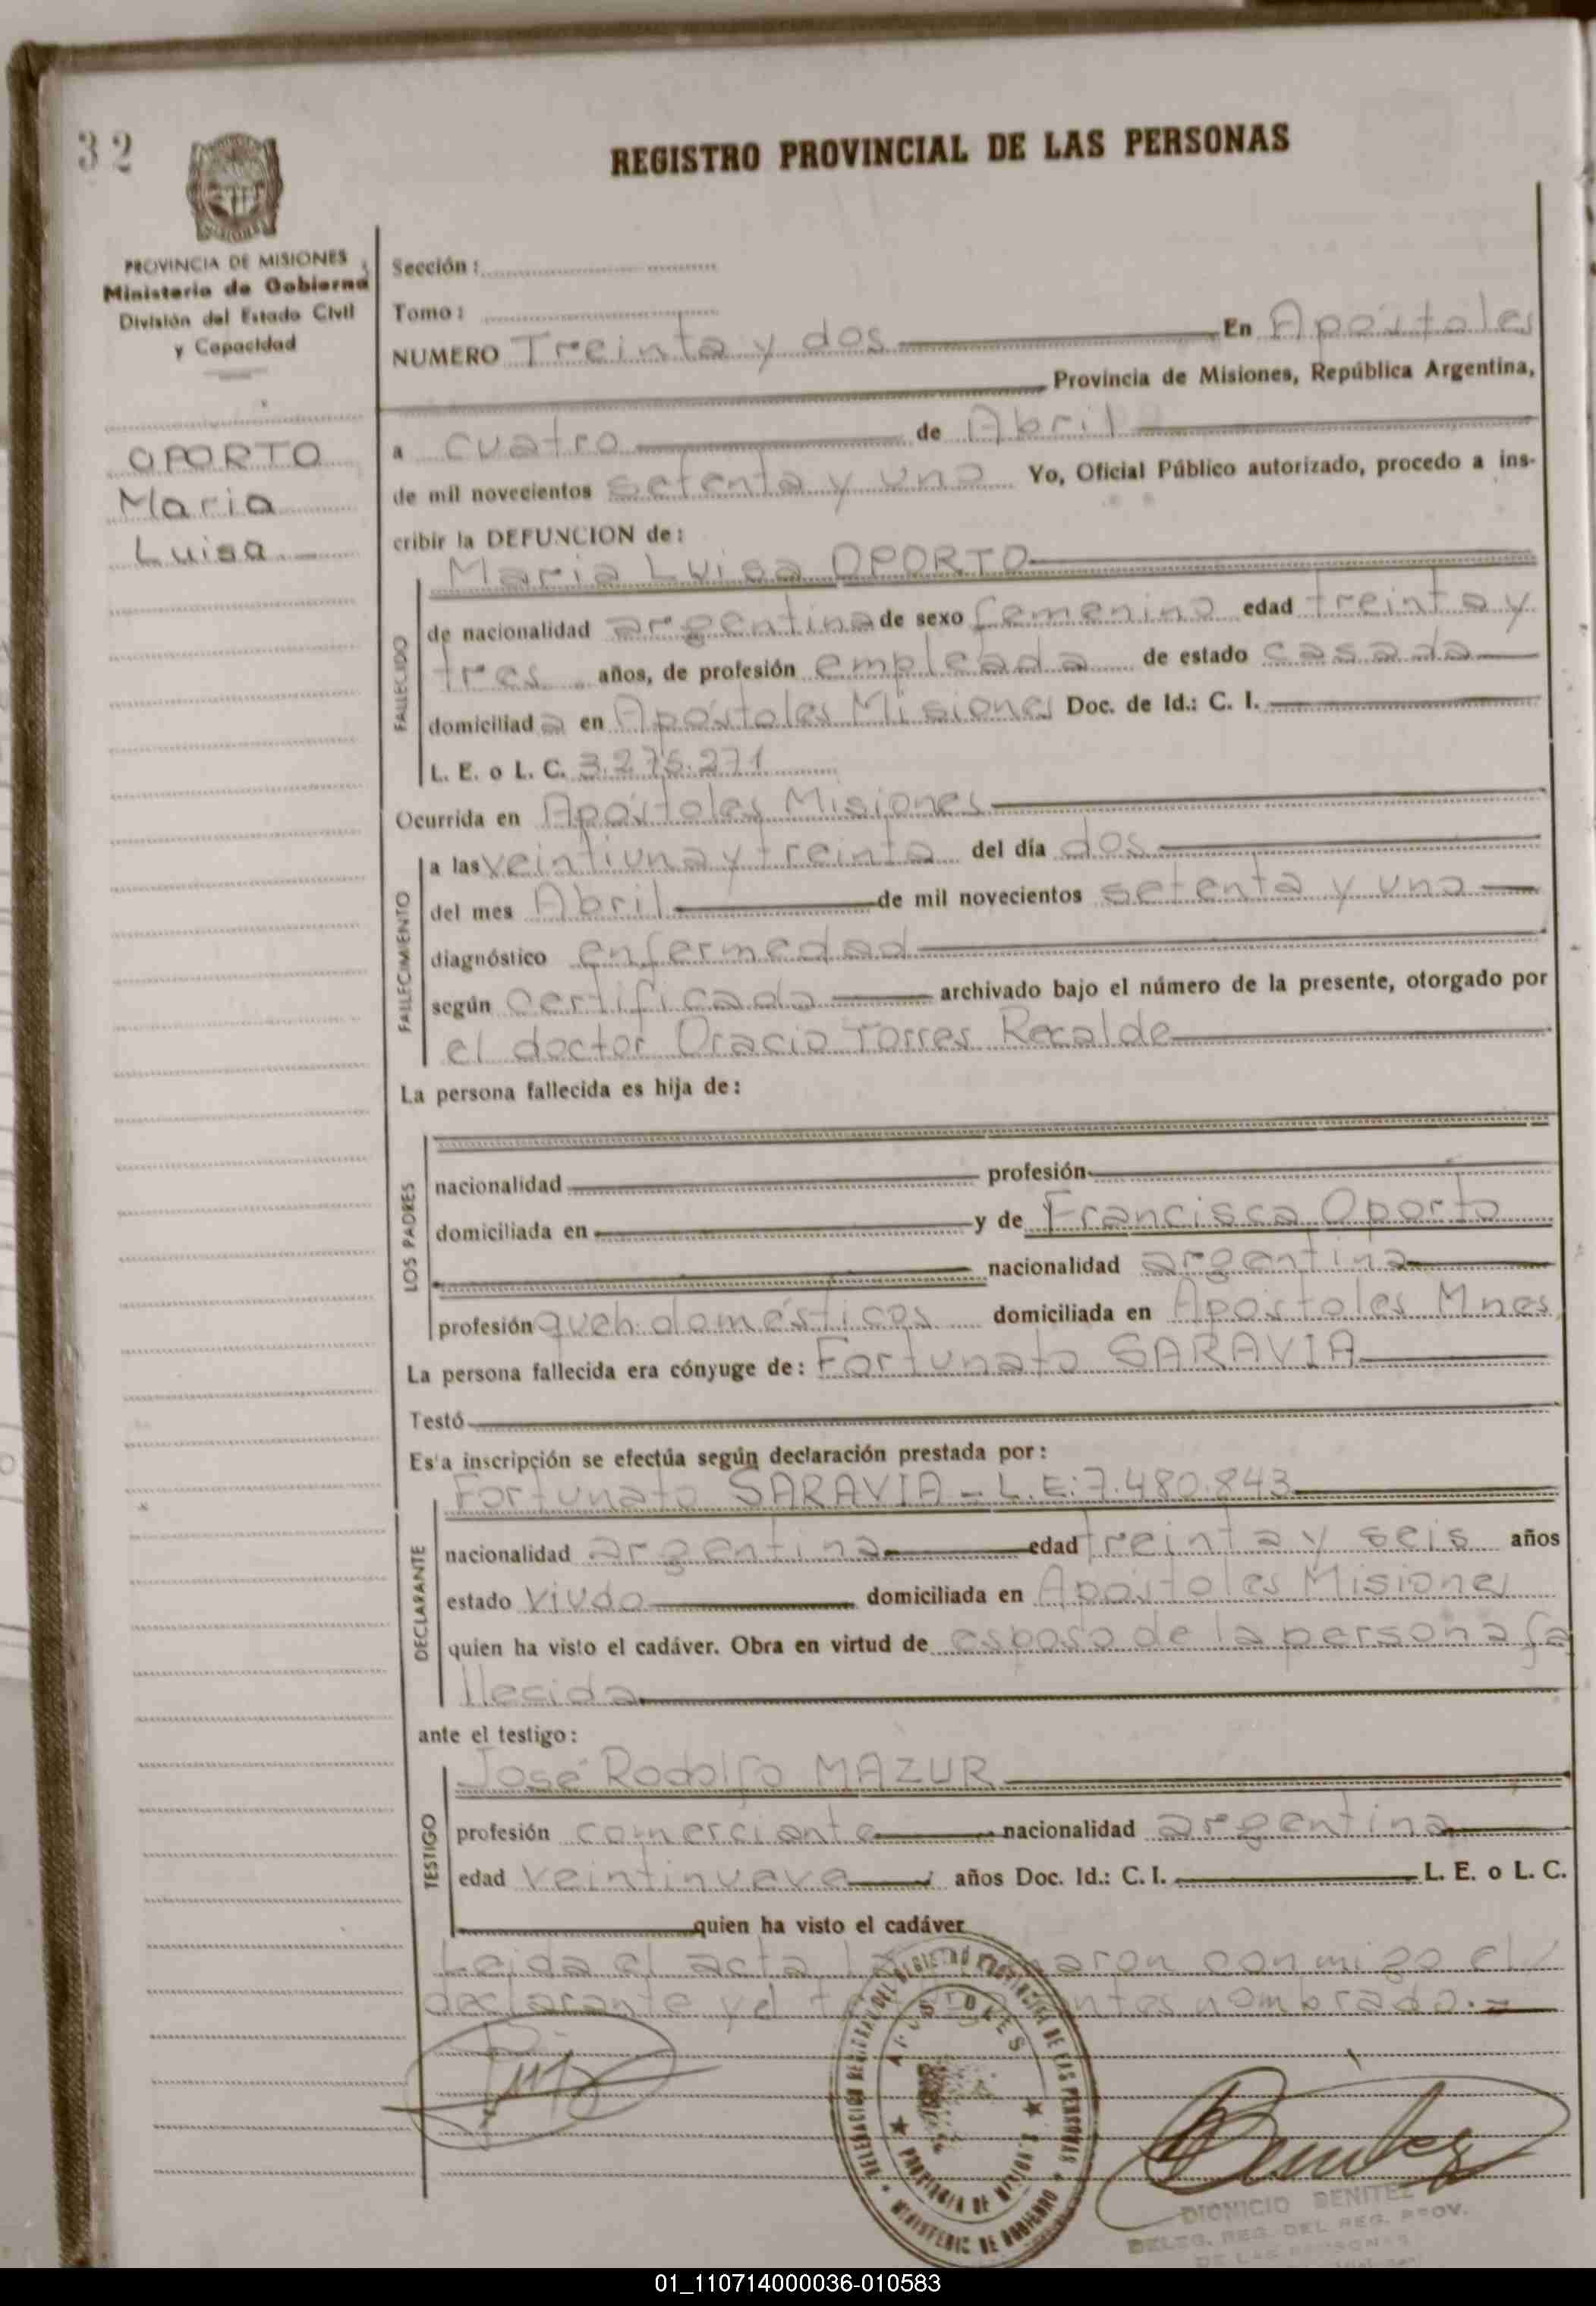 32
REGISTRO PROVINCIAL DE LAS PERSONAS
PROVINCIA DE MISIONES
Ministerio de Gobierno
División del Estado Civil
y Capacidad
OPORTO
Maria
Luisa
Sección:
Tomo:
NUMERO Treinta y dos En Apóstoles
Provincia de Misiones, República Argentina,
a cuatro de Abril
de mil novecientos setenta y uno Yo, Oficial Público autorizado, procedo a ins-
cribir la DEFUNCION de:
Maria Luisa OPORTO
FALLECIDO
de nacionalidad argentina de sexo femenino edad treinta y
tres años, de profesión empleada de estado casada
domiciliad a en Apóstoles Misiones Doc. de Id.: C. I.
L. E. o L. C. 3.275.271
Ocurrida en Apóstoles Misiones
FALLECIMIENTO
a las veintiuna y treinta del día dos
del mes Abril de mil novecientos setenta y uno
diagnóstico enfermedad
según certificado archivado bajo el número de la presente, otorgado por
el doctor Oracio Torres Recalde
La persona fallecida es hija de:
LOS PADRES
nacionalidad profesión
domiciliada en y de Francisca Oporto
nacionalidad argentina
profesión queh. domésticos domiciliada en Apóstoles Mnes
La persona fallecida era cónyuge de: Fortunato SARAVIA
Testó
Esta inscripción se efectúa según declaración prestada por:
Fortunato SARAVIA - L.E: 7.480.843
DECLARANTE
nacionalidad argentina edad treinta y seis años
estado viudo domiciliada en Apóstoles Misiones
quien ha visto el cadáver. Obra en virtud de esposo de la persona fa
llecida
ante el testigo:
José Rodolfo MAZUR
TESTIGO
profesión comerciante nacionalidad argentina
edad veintinueve años Doc. Id.: C. I. L. E. o L. C.
quien ha visto el cadáver
Leida el acta la aron conmigo el
declarante y el antes nombrado.-
DELEGACION DEL REGISTRO PROVINCIAL DE LAS PERSONAS
APOSTOLES
PROVINCIA DE MISIONES
MINISTERIO DE GOBIERNO
Benitez
DIONICIO BENITEZ
DELEG. REG. DEL REG. PROV.
DE LAS PERSONAS
01_110714000036-010583